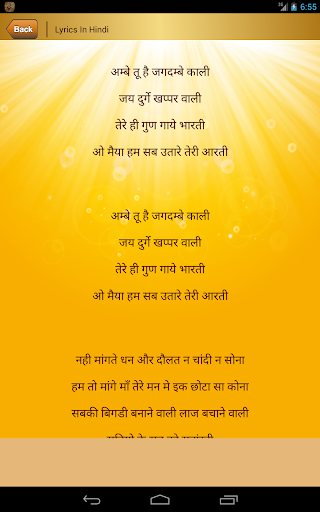 6:55
Back
Lyrics In Hindi
अम्बे तू है जगदम्बे काली
जय दुर्गे खप्पर वाली
तेरे ही गुण गाये भारती
ओ मैया हम सब उतारे तेरी आरती
अम्बे तू है जगदम्बे काली
जय दुर्गे खप्पर वाली
तेरे ही गुण गाये भारती
ओ मैया हम सब उतारे तेरी आरती
नही मांगते धन और दौलत न चांदी न सोना
हम तो मांगे माँ तेरे मन मे इक छोटा सा कोना
सबकी बिगडी बनाने वाली लाज बचाने वाली